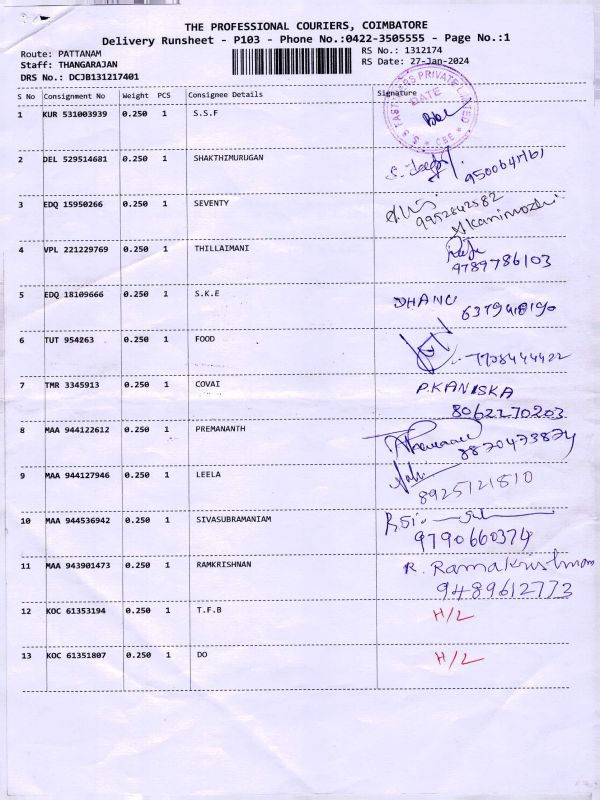 THE PROFESSIONAL COURIERS, COIMBATORE
Delivery Runsheet - P103 - Phone No.:0422-3505555 - Page No.:1
Route: PATTANAM RS No.: 1312174
Staff: THANGARAJAN RS Date: 27-Jan-2024
DRS No.: DCJB131217401
S No Consignment No Weight PCS Consignee Details Signature
DATE
CBE
1 KUR 531003939 0.250 1 S.S.F
2 DEL 529514681 0.250 1 SHAKTHIMURUGAN
3 EDQ 15950266 0.250 1 SEVENTY 9952842582
Kanimozhi
4 VPL 221229769 0.250 1 THILLAIMANI
9789786103
5 EDQ 18109666 0.250 1 S.K.E DHANU
6 TUT 954263 0.250 1 FOOD 7708444422
7 TMR 3345913 0.250 1 COVAI P.KANISKA
8062270203
8 MAA 944122612 0.250 1 PREMANANTH 8870473874
9 MAA 944127946 0.250 1 LEELA 8925121810
10 MAA 944536942 0.250 1 SIVASUBRAMANIAM
9790660374
11 MAA 943901473 0.250 1 RAMKRISHNAN R. Ramakrishnan
9489612773
12 KOC 61353194 0.250 1 T.F.B H/L
13 KOC 61351807 0.250 1 DO H/L